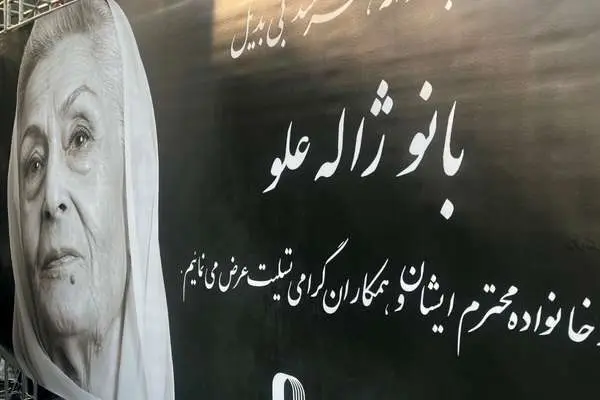 هنرمند بی‌بدیل
بانو ژاله علو
خانواده محترم ایشان و همکاران گرامی تسلیت عرض می نمائیم.